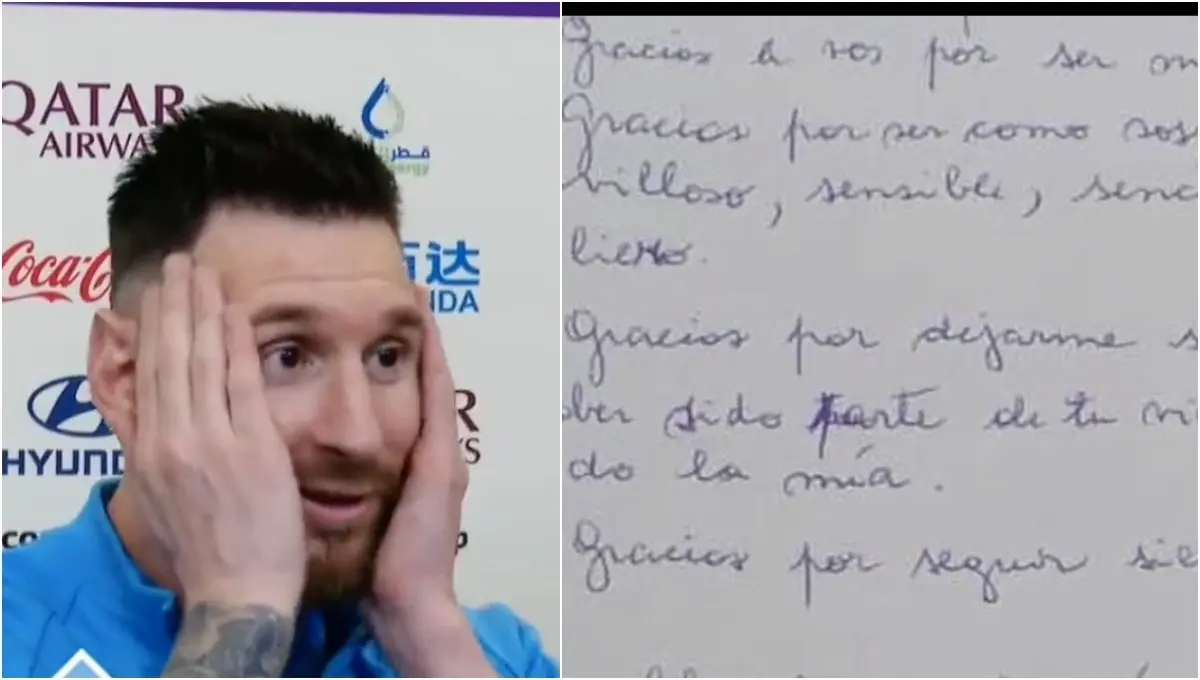 QATAR
AIRWA
قطر
ergy
Coca-C
百达
NDA
HYUND
R
YS
co
p
Gracias a vos por ser m
Gracias por ser como sos
villoso, sensible, senc
lieto.
Gracias por dejarme s
ber sido parte de tu vi
do la mía.
Gracias por seguir sie